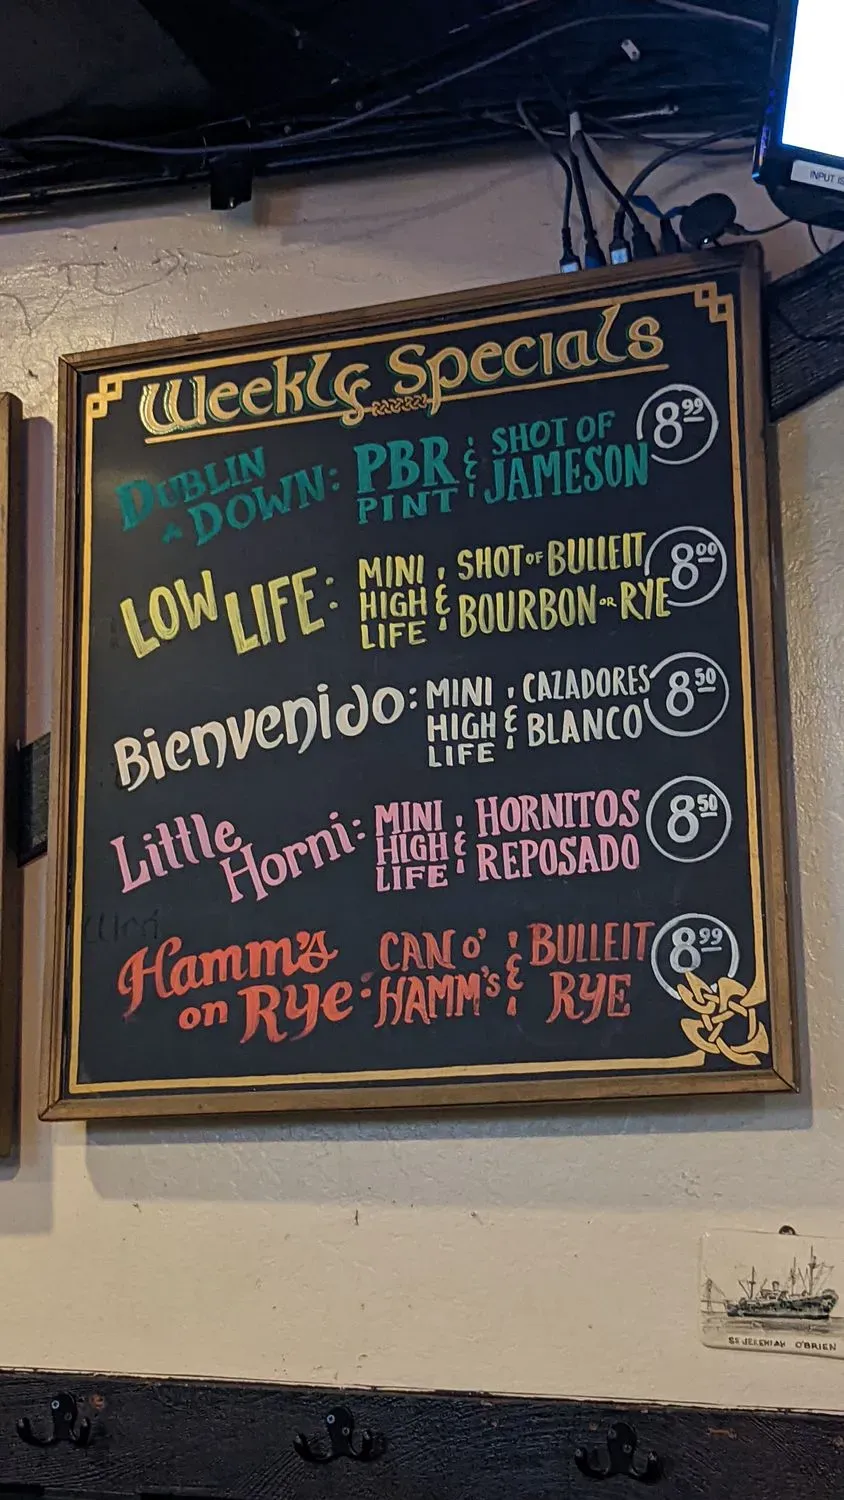 INPUT IS
Weekly Specials
DUBLIN DOWN: PBR PINT & SHOT OF JAMESON 8.99
LOW LIFE: MINI HIGH LIFE & SHOT OF BULLEIT BOURBON OR RYE 8.00
Bienvenido: MINI HIGH LIFE & CAZADORES BLANCO 8.50
Little Horni: MINI HIGH LIFE & HORNITOS REPOSADO 8.50
Hamm's on Rye: CAN O' HAMM'S & BULLEIT RYE 8.99
SS JEREMIAH O'BRIEN